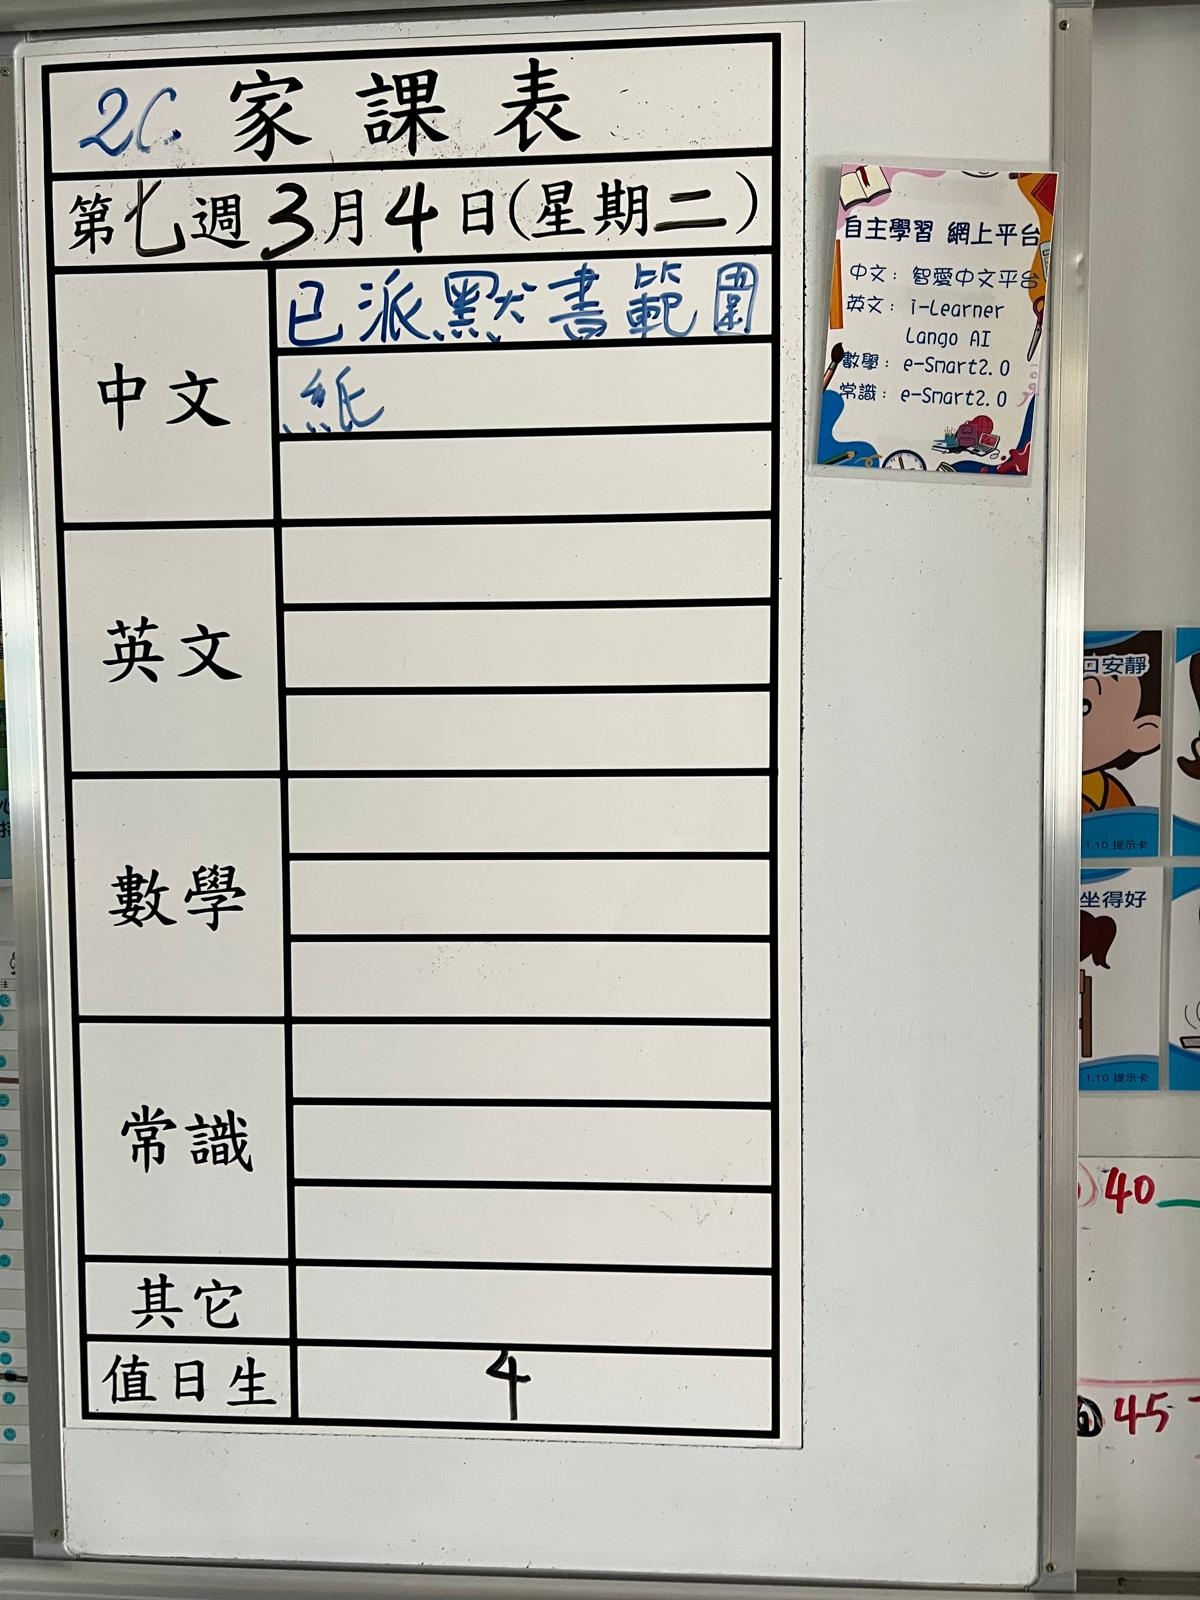 2C. 家課表
第七週3月4日(星期二)
中文
已派默書範圍
紙
英文
數學
常識
其它
值日生
4
自主學習 網上平台
中文：智愛中文平台
英文：i-Learner
Lango AI
數學：e-Smart2.0
常識：e-Smart2.0
口安靜
1.10 提示卡
坐得好
1.10 提示卡
40
45